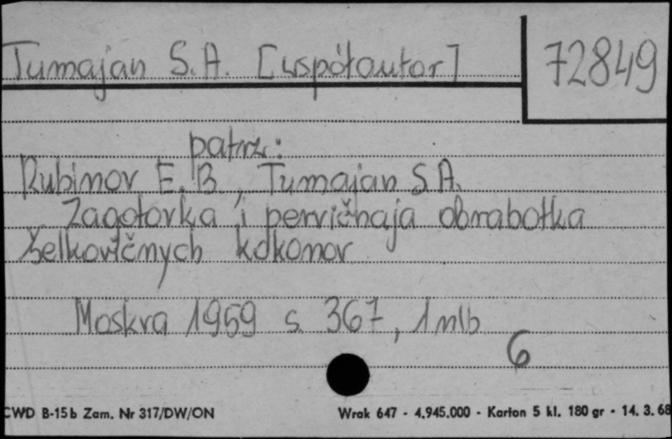 Tumajan S.A. [współautor]
72849
patrz:
Rubinov E.B, Tumajan S.A.
Zagotovka i pervičnaja obrabotka
šelkovičnych kokonov
Moskva 1959 s. 367, 1 nlb
6
CWD B-15b Zam. Nr 317/DW/ON
Wrak 647 - 4.945.000 - Karton 5 kl. 180 gr - 14. 3. 68